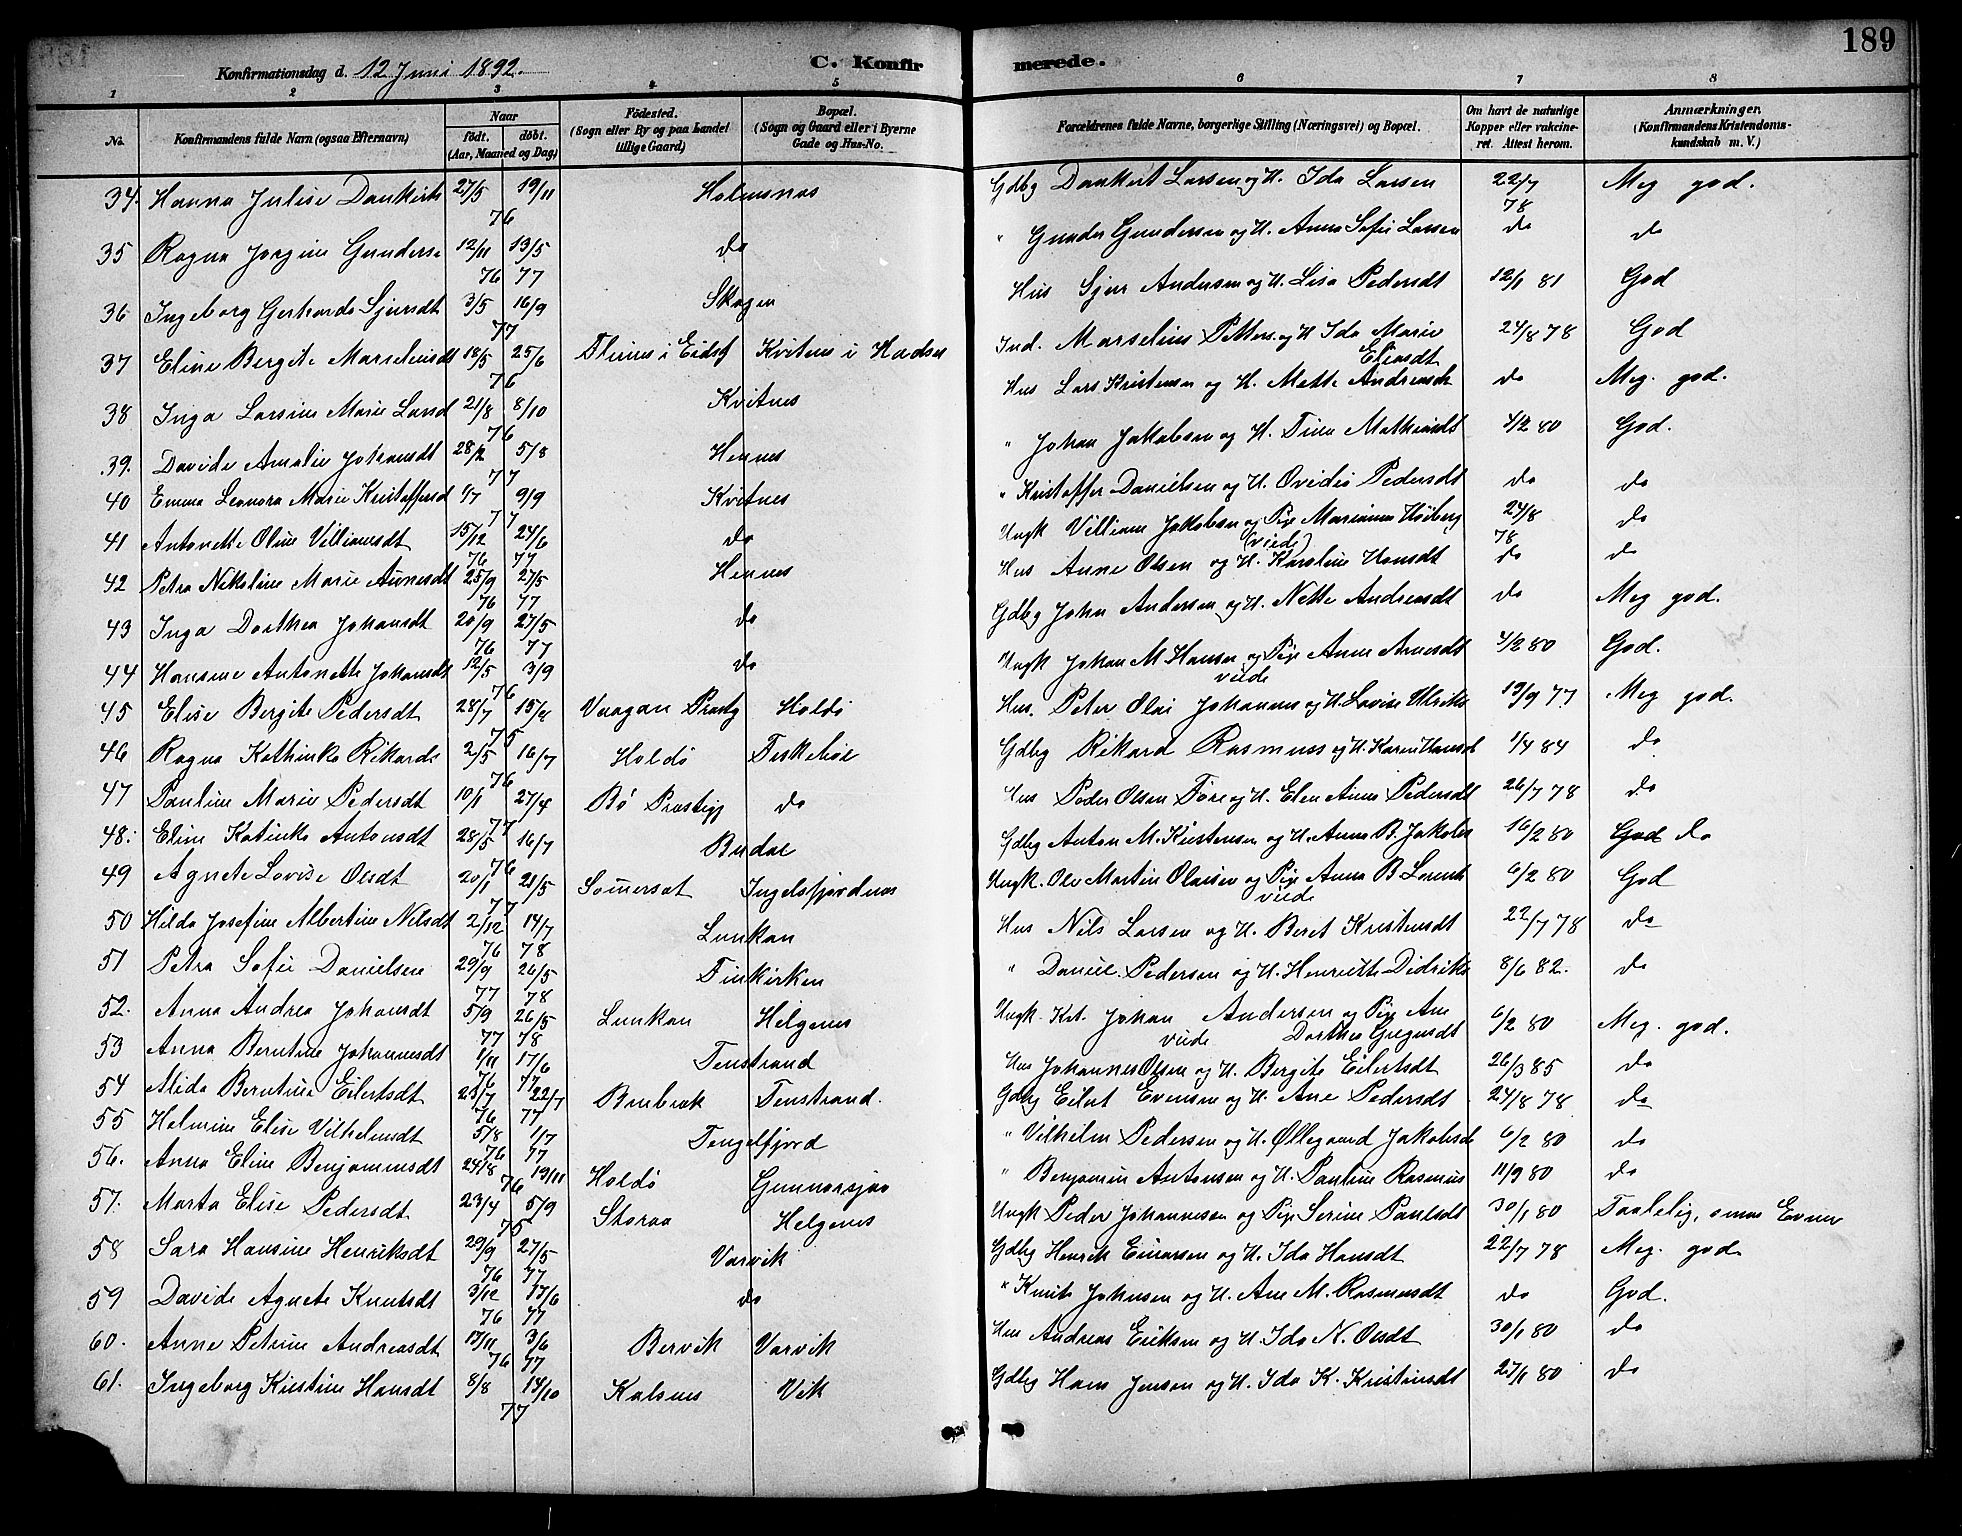 189
Konfirmationsdag d. 12 Juni 1892.
C. Konfirmerede.
1 2 3 4 5 6 7 8
No. Konfirmandens fulde Navn (ogsaa Efternavn) Naar født. døbt. (Aar, Maaned og Dag) Fødested. (Sogn eller By og paa Landet tillige Gaard) Bopæl. (Sogn og Gaard eller i Byerne Gade og Hus-No. Forældrenes fulde Navne, borgerlige Stilling (Næringsvei) og Bopæl. Om havt de naturlige Kopper eller vakcineret. Attest herom. Anmærkninger. (Konfirmandens Kristendomskundskab m. V.)
34. Hanna Julise Dankerts 27/5 19/11 76 Holmsnæs Gdbg Dankert Larsen og H. Ida Larsen 22/7 78 Meg god.
35 Ragna Jorgine Gunderse 12/11 76 13/5 77 do " Gunder Gundersen og H. Anne Sofie Larsen do do
36 Ingeborg Gerharda Sjursdt 3/5 16/9 77 Skagen Hus Sjur Andersen og H. Lisa Pedersdt 12/1 81 God
37 Eline Bergite Marseliusdt 18/5 25/6 76 Flines i Eidsf Kvitnes i Hadsel Ind. Marselius Petters. og H Ida Marie Eliasdt 24/8 78 God
38 Inga Larsine Marie Larsd 21/8 8/10 76 Kvitnes Hus Lars Kristensen og H. Mette Andreasdt do Meg. god.
39. Davida Amalie Johansdt 28/2 5/8 77 Hennes " Johan Jakobsen og H. Tina Mathiasdt 4/2 80 God.
40 Emma Leonora Marie Kristoffersd 1/7 9/9 77 Kvitnes " Kristoffer Danielsen og H. Ovidia Pedersdt do do
41 Antonette Oline Villiamsdt 15/12 76 24/6 77 do Ungk Villiam Jakobsen og Pige Marianne Høiberg (viede) 24/8 78 do
42 Petra Nikoline Marie Arnesdt 25/9 76 27/5 77 Hennes Hus Arne Olsen og H. Karoline Hansdt do do
43 Inga Dorthea Johansdt 20/9 76 27/5 77 do Gdbg Johan Andersen og H. Nette Andreasdt do Meg god.
44 Hansine Antonette Johansdt 12/5 3/9 76 do Ungk Johan M. Hansen og Pige Anne Arnesdt viede 4/2 80 God.
45 Elise Bergite Pedersdt 28/7 15/8 75 Vaagan Præstg Holdö Hus. Peter Olai Johannes og H. Lovise Ulrikke 19/9 77 Meg god.
46 Ragna Kathinka Rikards 2/5 16/7 76 Holdö Fiskeböl Gdbg Rikard Rasmuss og H. Karen Hansdt 1/4 84 do
47 Pauline Marie Pedersdt 10/1 27/4 77 Bö Præstgj do Hus Peder Olsen Före og H. Elen Anne Pedersdt 26/7 78 do
48. Eline Katinka Antonsdt 28/5 16/7 76 Budal Gdbg Anton M. Kristensen og H. Anna B. Jakobs 16/2 80 God do
49 Agnete Lovise Olsdt 20/1 21/5 77 Sommersæt Ingelsfjordnes Ungk. Ole Martin Olaisen og Pige Anna B Lorents viede 6/2 80 God
50 Hilda Josefine Albertine Nilsdt 2/12 76 14/7 78 Lunkan Hus Nils Larsen og H. Beret Kristensdt 22/7 78 do
51 Petra Sofie Danielsen 29/9 77 26/5 78 Finkirken " Daniel Pedersen og H. Henriette Didriks 8/6 82. do
52. Anna Andrea Johansdt 5/9 77 26/5 78 Lunkan Helgenes Ungk. Johan Andersen og Pige Ane Dorthea Gregersdt viede 6/2 80 Meg. god.
53 Anna Berntine Johannesdt 1/11 76 17/6 77 Fenstrand Hus Johannes Olsen og H. Bergite Eilertsdt 26/3 85 do
54 Alida Berntina Eilertsdt 23/7 76 22/7 77 Brubræk Fenstrand. Gdbg Eilert Evensen og H. Ane Pedersdt 24/8 78 do
55 Helmine Elise Vilhelmsdt 5/8 76 1/7 77 Tengelfjord " Vilhelm Pedersen og H. Øllegaard Jakobsdt 6/2 80 do
56. Anna Eline Benjaminsdt 24/8 19/11 76 Holdö Gunnarsjaa " Benjamin Antonsen og H. Pauline Rasmus 11/9 80 do
57. Marta Elise Pedersdt 23/4 5/9 75 Storaa Helgenes Ungk Peder Johannesen og Pige Serine Paulsdt 30/1 80 Taalelig, smaa Evner
58 Sara Hansine Henriksdt 29/9 76 27/5 77 Varvik Gdbg Henrik Einarsen og H. Ida Hansdt 22/7 78 Meg. god.
59 Davida Agnete Knutsdt 3/12 76 17/6 77 do " Knut Johnsen og H. Ane M. Rasmusdt do God.
60. Anne Petrine Andreasdt 17/11 76 3/6 77 Bervik Varvik Hus Andreas Eriksen og H. Ida N. Olsdt 30/1 80 do
61. Ingeborg Kirstine Hansdt 8/8 14/10 77 Kalsnes Vik Gdbg Hans Jensen og H. Ida K. Kristinsdt 27/1 80 do